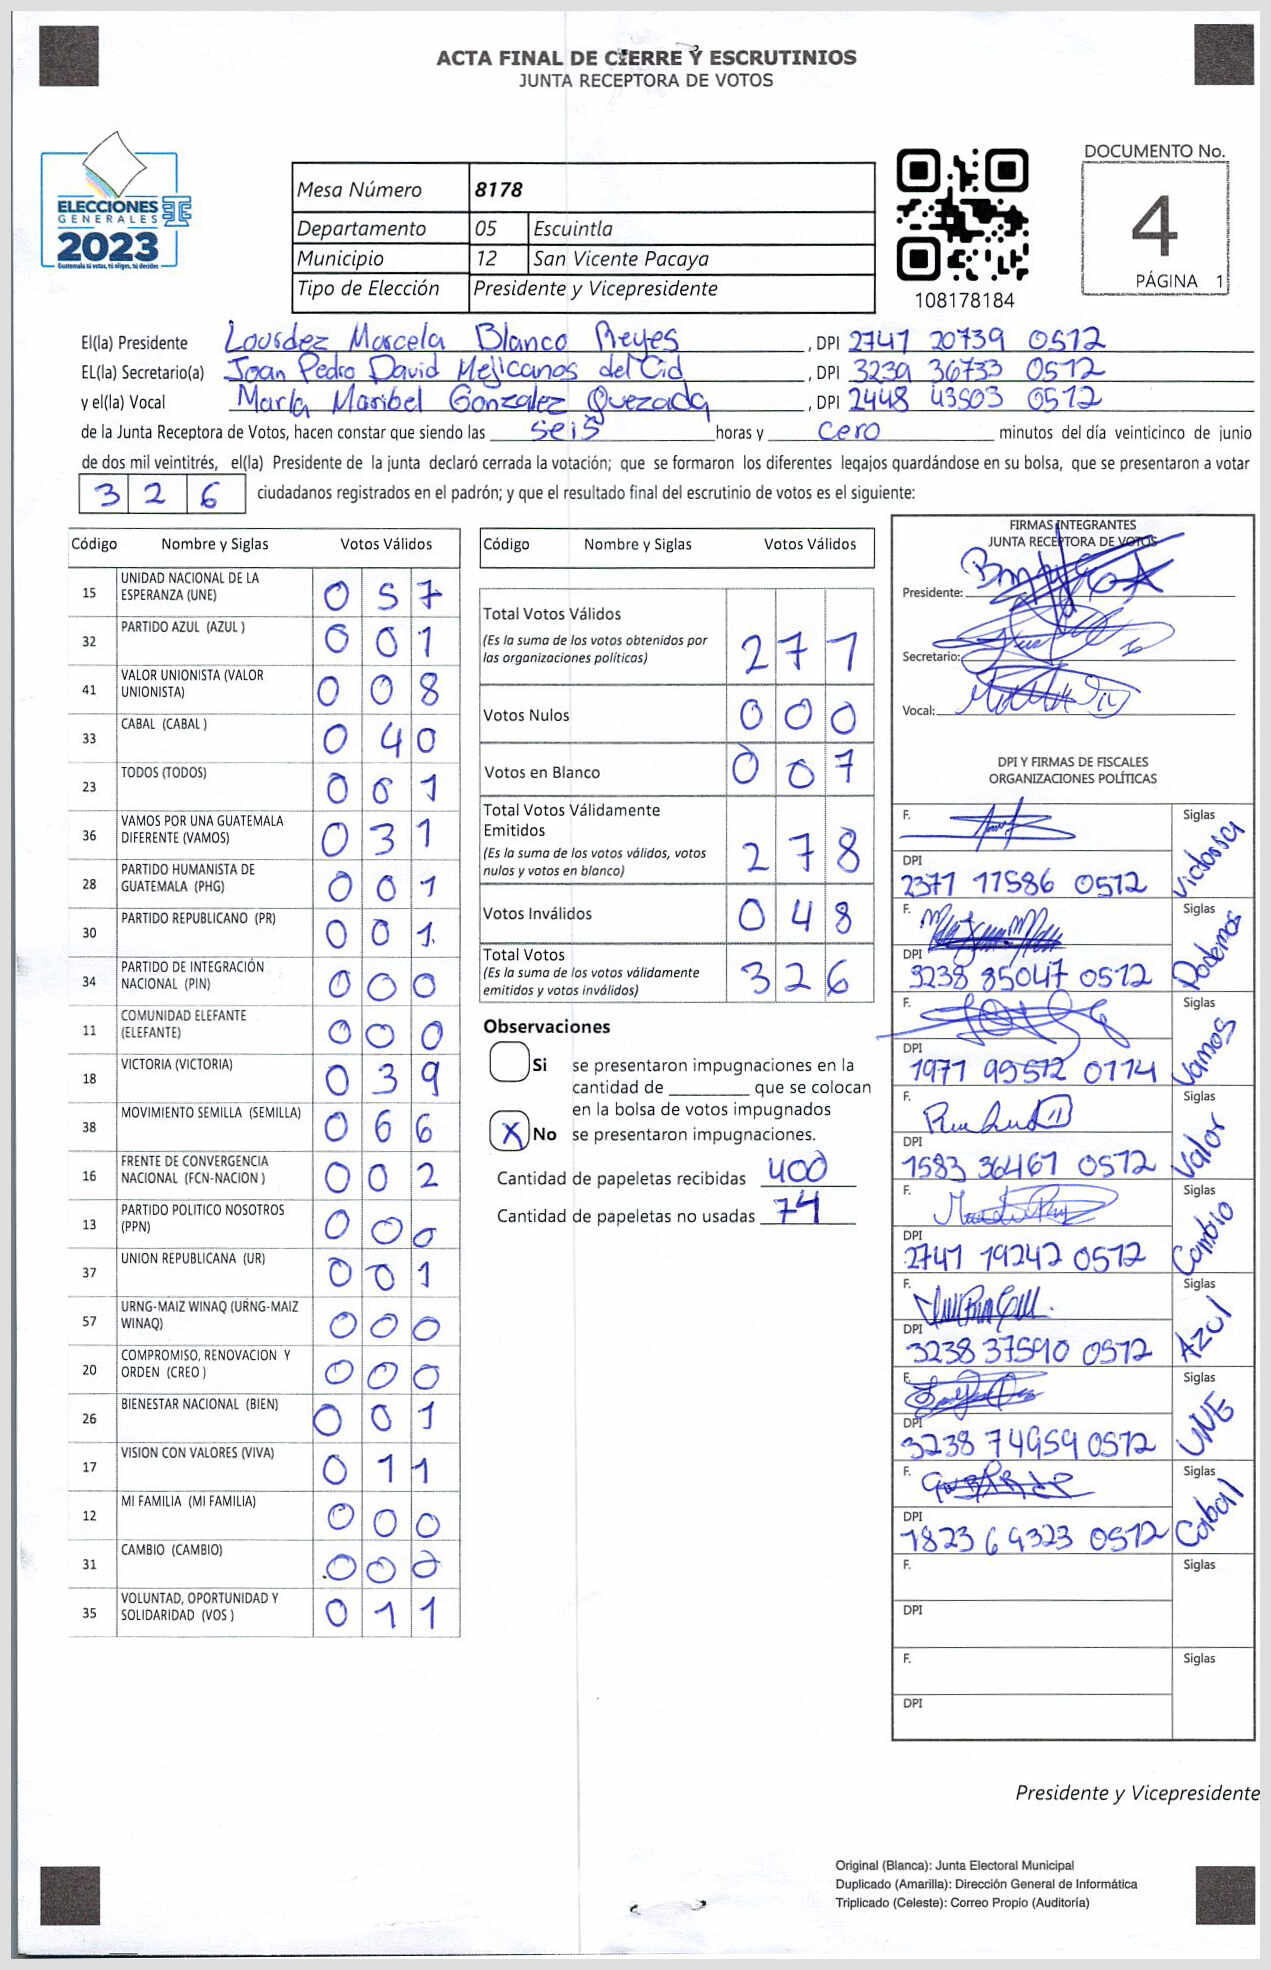 ACTA FINAL DE CIERRE Y ESCRUTINIOS
JUNTA RECEPTORA DE VOTOS
ELECCIONES
GENERALES
2023
Guatemala tú votas, tú eliges, tú decides
Mesa Número 8178
Departamento 05 Escuintla
Municipio 12 San Vicente Pacaya
Tipo de Elección Presidente y Vicepresidente
108178184
DOCUMENTO No.
4
PÁGINA 1
El(la) Presidente Lourdez Marcela Blanco Reyes, DPI 2747 20739 0512
EL(la) Secretario(a) Joan Pedro David Mejicanos del Cid, DPI 3239 36733 0512
y el(la) Vocal María Maribel Gonzalez Quezada, DPI 2448 43503 0512
de la Junta Receptora de Votos, hacen constar que siendo las seis horas y cero minutos del día veinticinco de junio
de dos mil veintitrés, el(la) Presidente de la junta declaró cerrada la votación; que se formaron los diferentes legajos quardándose en su bolsa, que se presentaron a votar
326 ciudadanos registrados en el padrón; y que el resultado final del escrutinio de votos es el siguiente:
Código Nombre y Siglas Votos Válidos
15 UNIDAD NACIONAL DE LA ESPERANZA (UNE) 057
32 PARTIDO AZUL (AZUL ) 001
41 VALOR UNIONISTA (VALOR UNIONISTA) 008
33 CABAL (CABAL ) 040
23 TODOS (TODOS) 061
36 VAMOS POR UNA GUATEMALA DIFERENTE (VAMOS) 031
28 PARTIDO HUMANISTA DE GUATEMALA (PHG) 001
30 PARTIDO REPUBLICANO (PR) 001
34 PARTIDO DE INTEGRACIÓN NACIONAL (PIN) 000
11 COMUNIDAD ELEFANTE (ELEFANTE) 000
18 VICTORIA (VICTORIA) 039
38 MOVIMIENTO SEMILLA (SEMILLA) 066
16 FRENTE DE CONVERGENCIA NACIONAL (FCN-NACION ) 002
13 PARTIDO POLITICO NOSOTROS (PPN) 000
37 UNION REPUBLICANA (UR) 001
57 URNG-MAIZ WINAQ (URNG-MAIZ WINAQ) 000
20 COMPROMISO, RENOVACION Y ORDEN (CREO ) 000
26 BIENESTAR NACIONAL (BIEN) 001
17 VISION CON VALORES (VIVA) 011
12 MI FAMILIA (MI FAMILIA) 000
31 CAMBIO (CAMBIO) 000
35 VOLUNTAD, OPORTUNIDAD Y SOLIDARIDAD (VOS ) 011
Código Nombre y Siglas Votos Válidos
Total Votos Válidos 271
(Es la suma de los votos obtenidos por
las organizaciones políticas)
Votos Nulos 000
Votos en Blanco 007
Total Votos Válidamente
Emitidos 278
(Es la suma de los votos válidos, votos
nulos y votos en blanco)
Votos Inválidos 048
Total Votos 326
(Es la suma de los votos válidamente
emitidos y votos inválidos)
Observaciones
Si se presentaron impugnaciones en la
cantidad de ________ que se colocan
en la bolsa de votos impugnados
X No se presentaron impugnaciones.
Cantidad de papeletas recibidas 400
Cantidad de papeletas no usadas 74
FIRMAS INTEGRANTES
JUNTA RECEPTORA DE VOTOS
Presidente:
Secretario:
Vocal:
DPI Y FIRMAS DE FISCALES
ORGANIZACIONES POLÍTICAS
F. Siglas Victoria
DPI 2371 11586 0512
F. Siglas Podemos
DPI 3238 85047 0512
F. Siglas Vamos
DPI 1971 99512 0114
F. Siglas Valor
DPI 1583 36467 0512
F. Siglas Cambio
DPI 2741 19242 0512
F. Siglas Azul
DPI 3238 37590 0512
F. Siglas UNE
DPI 3238 74959 0512
F. Siglas Cabal
DPI 1823 64323 0512
F. Siglas
DPI
F. Siglas
DPI
Presidente y Vicepresidente
Original (Blanca): Junta Electoral Municipal
Duplicado (Amarilla): Dirección General de Informática
Triplicado (Celeste): Correo Propio (Auditoría)